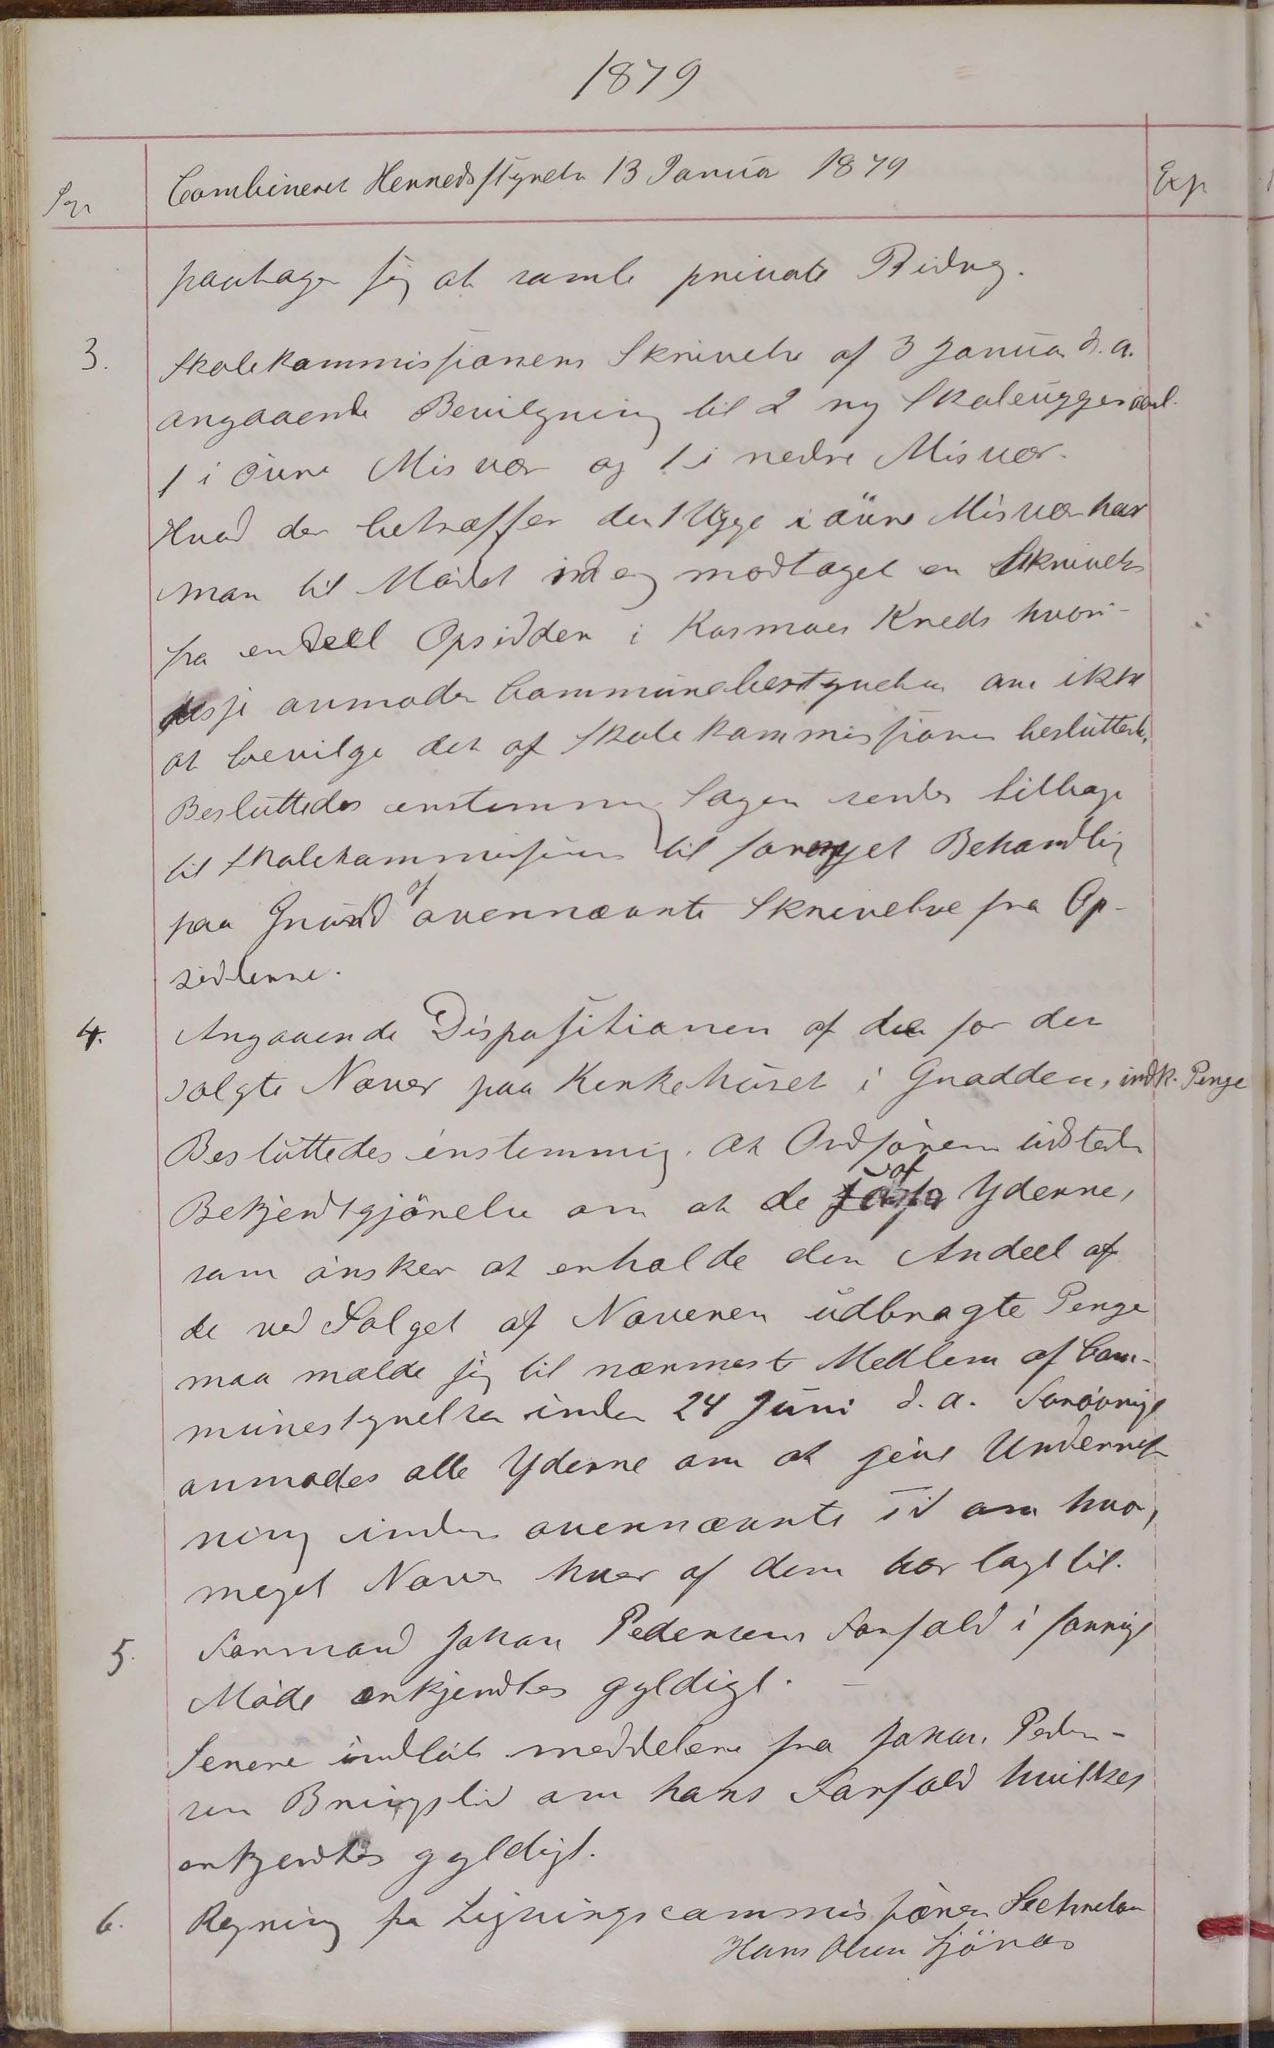 1879
Combineret Herredsstyrelse 13 Januar 1879
Exp
paatager sig at samle private Bidrag.
3. Skolekommissionens Skrivelse af 3 Januar d. a.
angaaende Bevilgning til 2 ny Skoleugger
1 i övre Misvær og 1 i nedre Misvær.
Hvad der betræffer den 1 Ugge i övre Misvær har
man til Mödet idag modtaget en Skrivelse
fra endeel Opsiddere i Kosmoes Kreds hvori
disse anmoder Communebestyrelsen om ikke
at bevilge det af Skolekommissionen besluttede.
Besluttedes enstemmig Sagen sendes tilbage
til Skolekommissionen til fornyet Behandling
paa Grund af ovennævnte Skrivelse fra Op-
sidderne.
4. Angaaende Dispositionen af de for den
solgte Næver paa Kirkehuset i Gradden, indk. Penge
Besluttedes enstemmig. At Ordföreren udsteder
Bekjendtgjörelse om at de af Yderne,
som önsker at erholde den Andeel af
de ved Salget af Næveren udbragte Penge
maa melde sig til nærmeste Medlem af Com-
munestyrelsen inden 24 Juni d. a. Forövrigt
anmodes alle Yderne om at give Underret-
ning inden ovennævnte Tid om hvor
meget Næver hver af dem har lagt til.
5. Formand Johan Pedersens Forfald i forrige
Möde ankjendtes gyldigt.
Senere indlöb meddelelse fra Johan Peder-
sen Bringslid om hans Forfald hvilket
ankjendtes gyldigt.
6. Regning fra Ligningscommissionens Sekretær
Hans Olsen Fjönæs